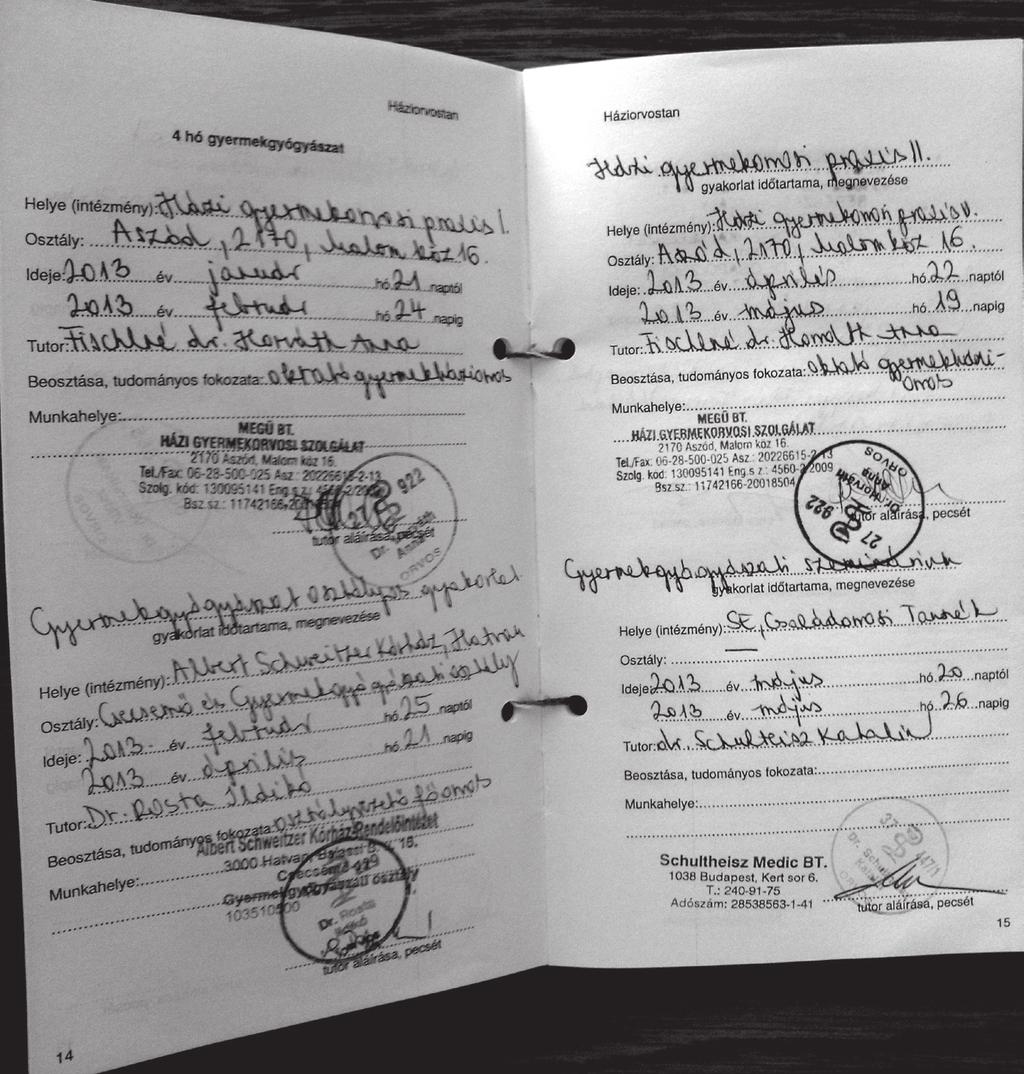 Háziorvostan
4 hó gyermekgyógyászat
Helye (intézmény): Házi gyermekorvosi praxis I.
Osztály: Aszód, 2170, Malom köz 16.
Ideje: 2013 év január hó 21 naptól
2013 év február hó 24 napig
Tutor: Fischlné dr. Horváth Anna
Beosztása, tudományos fokozata: oktató gyermekháziorvos
Munkahelye:
MEGÜ BT.
HÁZI GYERMEKORVOSI SZOLGÁLAT
2170 Aszód, Malom köz 16.
Tel./Fax: 06-28-500-025 Asz.: 20226615-2-13
Szolg. kód: 130095141 Eng.s z.: 4560-2/2009
Bsz.sz.: 11742166-20018504
922
Dr. Horváth
Anna
ORVOS
tutor aláírása, pecsét
Gyermekgyógyászat osztályos gyakorlat
gyakorlat időtartama, megnevezése
Helye (intézmény): Albert Schweitzer Kórház, Hatvan
Osztály: Csecsemő és Gyermekgyógyászati osztály
Ideje: 2013. év február hó 25 naptól
2013 év április hó 21 napig
Tutor: Dr. Rosta Ildikó
Beosztása, tudományos fokozata: osztályvezető főorvos
Albert Schweitzer Kórház-Rendelőintézet
3000 Hatvan, Balassi B. 16.
Munkahelye:
Csecsemő
Gyermekgyógyászati osztály
103510500
Dr. Rosta
Ildikó
tutor aláírása, pecsét
14
Háziorvostan
Házi gyermekorvosi praxis II.
gyakorlat időtartama, megnevezése
Helye (intézmény): Házi gyermekorvosi praxis II.
Osztály: Aszód, 2170, Malom köz 16.
Ideje: 2013 év április hó 22 naptól
2013 év május hó 19 napig
Tutor: Fischlné dr. Horváth Anna
Beosztása, tudományos fokozata: oktató gyermekházi-
orvos
Munkahelye:
MEGÜ BT.
HÁZI GYERMEKORVOSI SZOLGÁLAT
2170 Aszód, Malom köz 16.
Tel./Fax: 06-28-500-025 Asz.: 20226615-2-13
Szolg. kód: 130095141 Eng.s z.: 4560-2/2009
Bsz.sz.: 11742166-20018504
ORVOS
Dr. Horváth
Anna
27 922
tutor aláírása, pecsét
Gyermekgyógyászati szeminárium
gyakorlat időtartama, megnevezése
Helye (intézmény): SE, Családorvosi Tanszék
Osztály: —
Ideje: 2013 év május hó 20 naptól
2013 év május hó 26 napig
Tutor: dr. Schulteisz Katalin
Beosztása, tudományos fokozata:
Munkahelye:
Schultheisz Medic BT.
1038 Budapest, Kert sor 6.
T.: 240-91-75
Adószám: 28538563-1-41
tutor aláírása, pecsét
15